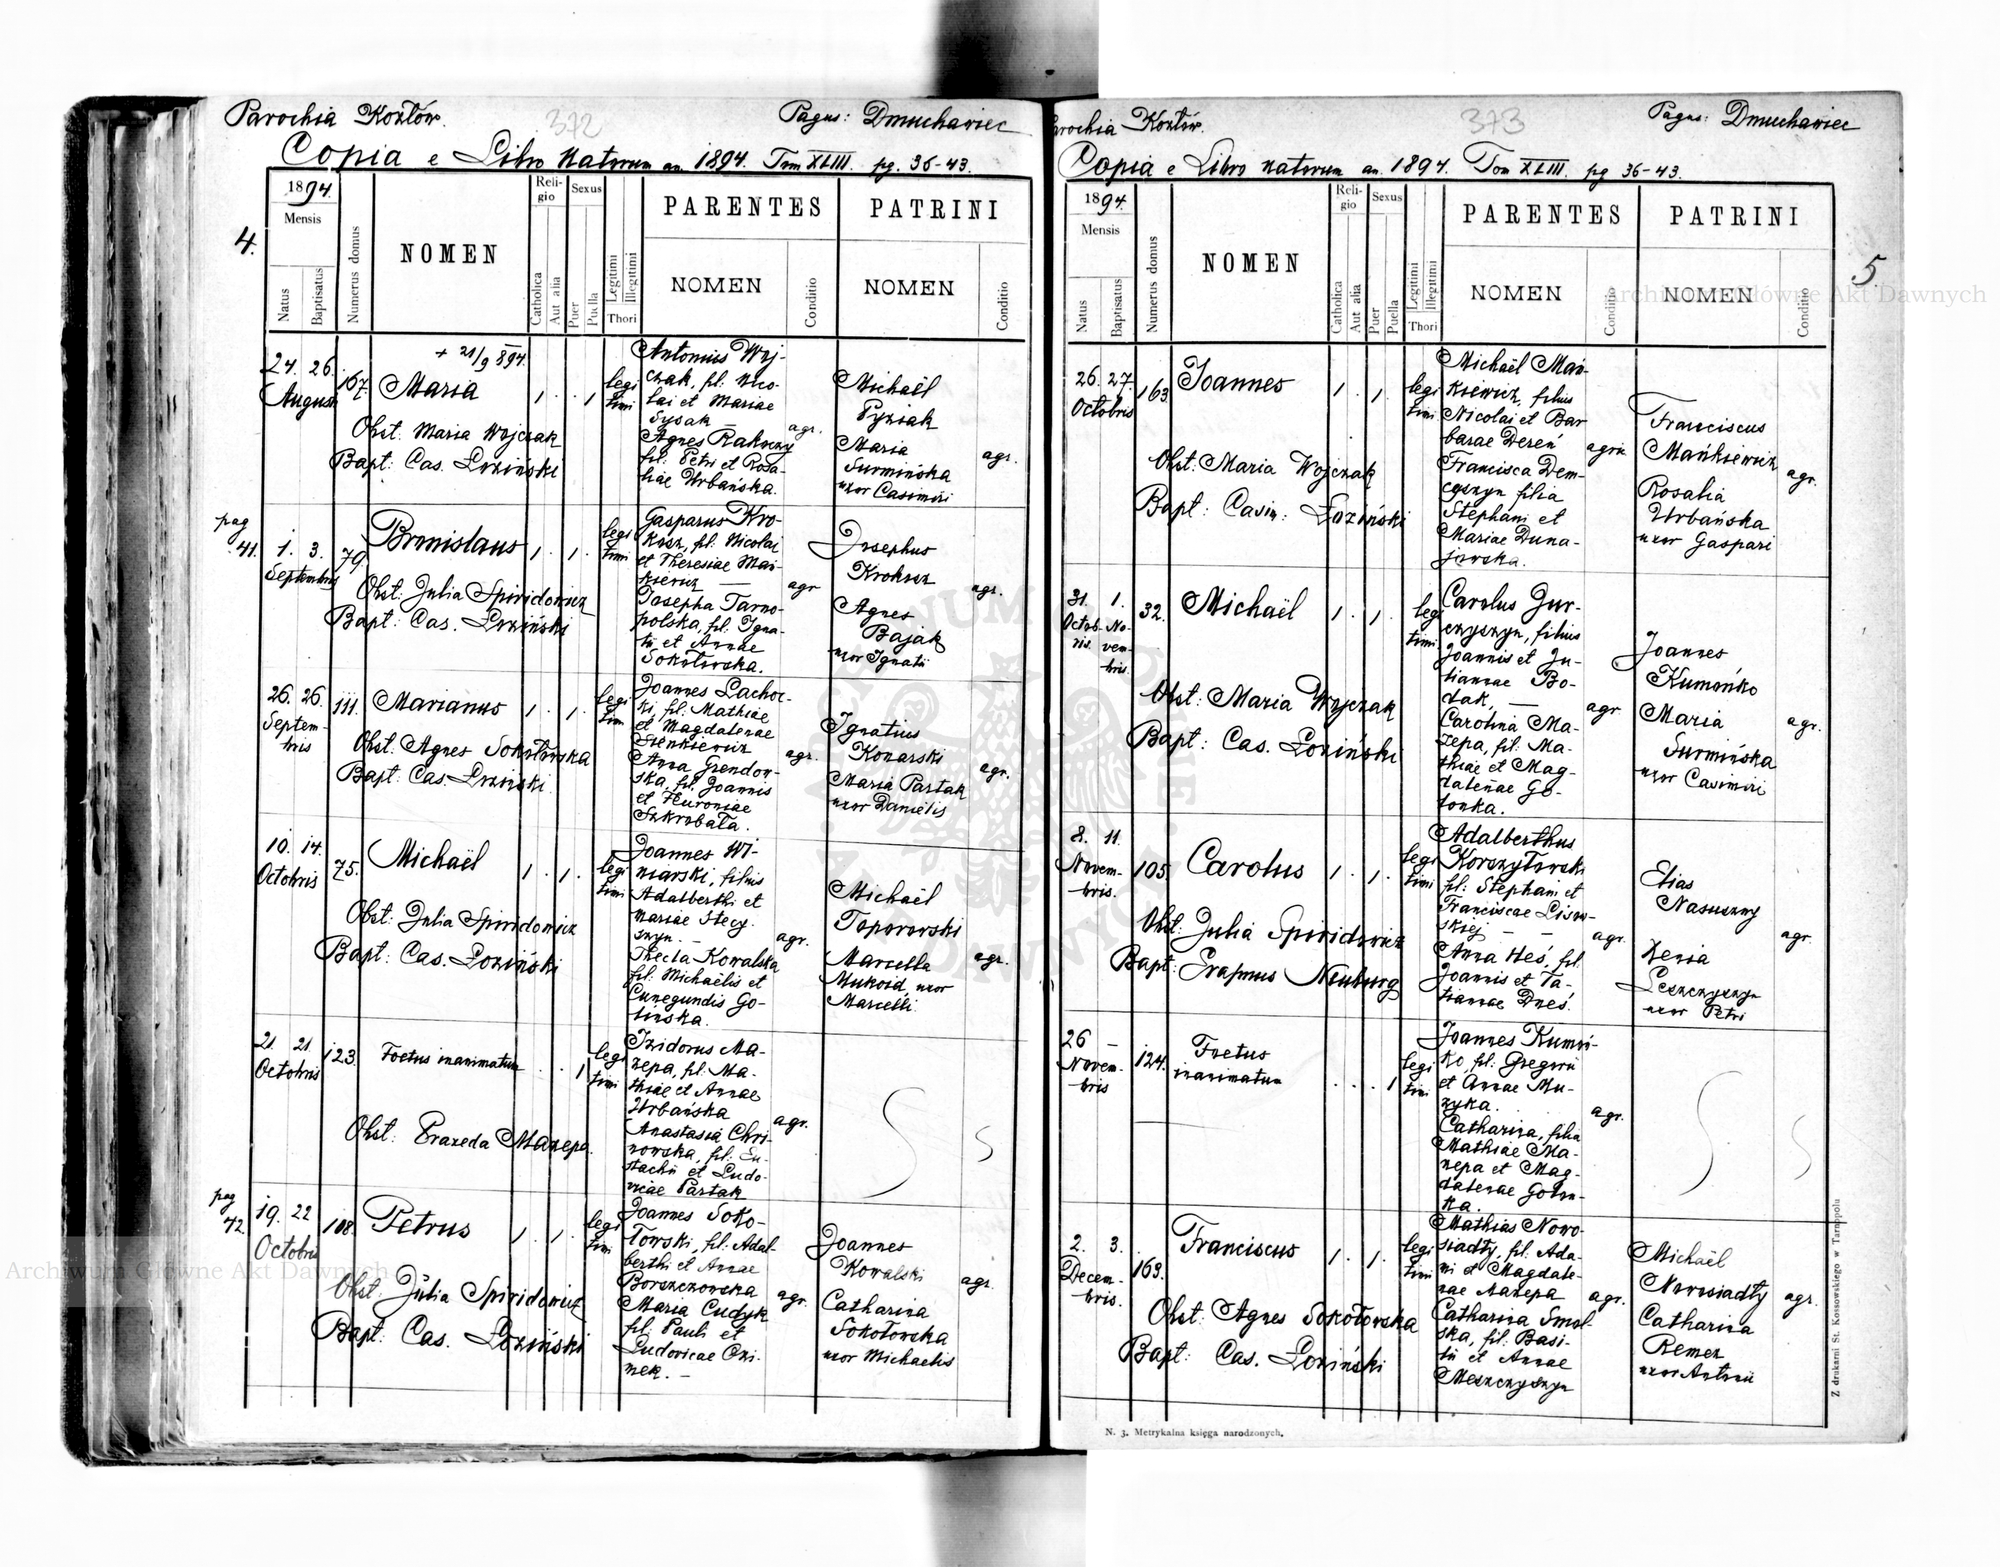 Parochia Kozłów.
372
Pagus: Dmuchawiec
Copia e Libro Natorum an. 1894. Tom XLIII. pg. 36-43.
4.
1894.
Mensis
Natus
Baptisatus
Numerus domus
NOMEN
Reli-
gio
Catholica
Aut alia
Sexus
Puer
Puella
Legitimi
Illegitimi
Thori
PARENTES
NOMEN
Conditio
PATRINI
NOMEN
Conditio
24. 26.
Augusti
167.
+ 21/9 894.
Maria
1 . . 1
legi
timi
Obst: Maria Wojczak
Bapt: Cas. Łoziński
Antonius Woj-
czak, fil: Nico-
lai et Mariae
Sysak —
Agnes Rakoczy
fil: Petri et Rosa-
liae Urbańska.
agr.
Michaël
Pyziak
Maria
Surmińska
uxor Casimiri
agr.
pag
41.
1. 3.
Septembris
79.
Bronislaus
1 . 1 .
legi
timi
Obst: Julia Spiridowicz
Bapt: Cas. Łoziński
Gasparus Kro-
kosz, fil. Nicolai
et Theresiae Mań-
kiewicz —
Josepha Tarno-
polska, fil. Igna-
tii et Annae
Sokołowska.
agr
Josephus
Krokosz
Agnes
Bajak
uxor Ignatii
agr.
26. 26.
Septem-
bris
111.
Marianus
1 . 1 .
legi
timi
Obst: Agnes Sokołowska
Bapt: Cas. Łoziński
Joannes Lachoc-
ki, fil. Mathiae
et Magdalenae
Sienkiewicz
Anna Grendow-
ska, fil. Joannis
et Fluroniae
Szkrobała.
agr.
Ignatius
Konarski
Maria Partak
uxor Danielis
agr.
10. 14.
Octobris
75.
Michaël
1 . 1 .
legi
timi
Obst: Julia Spiridowicz
Bapt: Cas. Łoziński
Joannes Wi-
niarski, filius
Adalberthi et
Mariae Stecy-
szyn. —
Thecla Kowalska
fil: Michaëlis et
Cunegundis Go-
lińska.
agr.
Michaël
Toporowski
Marcella
Mukoid, uxor
Marcelli
agr.
21. 21.
Octobris
123.
Foetus inanimatum
. . . 1
legi
timi
Obst: Praxeda Mazepa.
Izidorus Ma-
zepa, fil: Ma-
thiae et Annae
Urbańska
Anastasia Chri-
nowska, fil: Eu-
stachii et Ludo-
vicae Partak
agr.
pag
42.
19. 22
Octobris
108.
Petrus
1 . 1 .
legi
timi
Obst: Julia Spiridowicz
Bapt: Cas. Łoziński
Joannes Soko-
łowski, fil: Adal-
berthi et Annae
Borszczowska
Maria Cudyk
fil: Pauli et
Ludovicae Ozi-
mek. —
agr.
Joannes
Kowalski
Catharina
Sokołowska
uxor Michaelis
agr.
Parochia Kozłów.
373
Pagus: Dmuchawiec
Copia e Libro Natorum an. 1894. Tom XLIII. pg 36-43.
5.
1894.
Mensis
Natus
Baptisatus
Numerus domus
NOMEN
Reli-
gio
Catholica
Aut alia
Sexus
Puer
Puella
Legitimi
Illegitimi
Thori
PARENTES
NOMEN
Conditio
PATRINI
NOMEN
Conditio
26. 27.
Octobris
163
Joannes
1 . 1 .
legi
timi
Obst: Maria Wojczak
Bapt: Casim: Łoziński
Michaël Mań-
kiewicz, filius
Nicolai et Bar
barae Dereń
Francisca Dem-
czyszyn filia
Stephani et
Mariae Duna-
jowska.
Franciscus
Mańkiewicz
Rosalia
Urbańska
uxor Gaspari
agr.
31. 1.
Octob- No-
ris. vem-
bris.
32.
Michaël
1 . 1 .
legi
timi
Obst: Maria Wojczak
Bapt: Cas. Łoziński
Carolus Jur-
czyszyn, filius
Joannis et Ju-
liannae Bo-
dak, —
Carolina Ma-
zepa, fil. Ma-
thiae et Mag-
dalenae Go-
lonka.
agr
Joannes
Kumońko
Maria
Surmińska
uxor Casimiri
agr.
8. 11.
Novem-
bris.
105.
Carolus
1 . 1 .
legi
timi
Obst: Julia Spiridowicz
Bapt: Erasmus Neuburg
Adalberthus
Korczyłowski
fil: Stephani et
Franciscae Lisow-
skiej — —
Anna Heś, fil.
Joannis et Ta-
tiannae Dneś.
agr.
Elias
Nasuszny
Xenia
Leszczyszyn
uxor Petri
agr.
26 —
Novem-
bris
124.
Foetus
inanimatum
. . . 1
legi
timi
Joannes Kumoń-
ko, fil: Gregorii
et Annae Mu-
zyka.
Catharina, filia
Mathiae Ma-
zepa et Mag-
dalenae Golon-
ka.
agr.
2. 3.
Decem-
bris.
163.
Franciscus
1 . 1 .
legi
timi
Obst: Agnes Sokołowska
Bapt: Cas. Łoziński
Mathias Nowo-
siadły, fil: Ada-
mi et Magdale-
nae Mazepa
Catharina Smol-
ska, fil: Basi-
lii et Annae
Meszczyszyn
agr.
Michaël
Nowosiadły
Catharina
Remez
uxor Antonii
agr.
N. 3. Metrykalna księga narodzonych.
Z drukarni St. Kossowskiego w Tarnopolu
Archiwum Główne Akt Dawnych
Archiwum Główne Akt Dawnych
ARCHIWUM GŁÓWNE AKT DAWNYCH